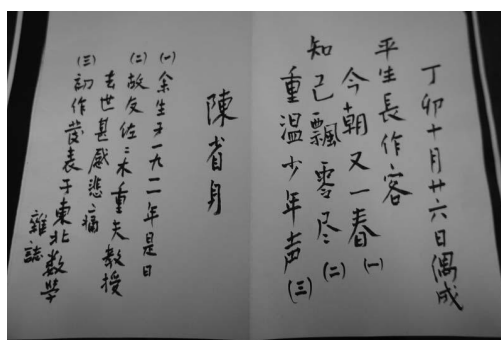 丁卯十月廿六日偶成
平生長作客
今朝又一春(一)
知己飄零尽(二)
重温少年声(三)
陳省身
(一)余生于一九一一年是日
(二)故友佐々木重夫教授
去世甚感悲痛
(三)初作發表于東北数学
雜誌